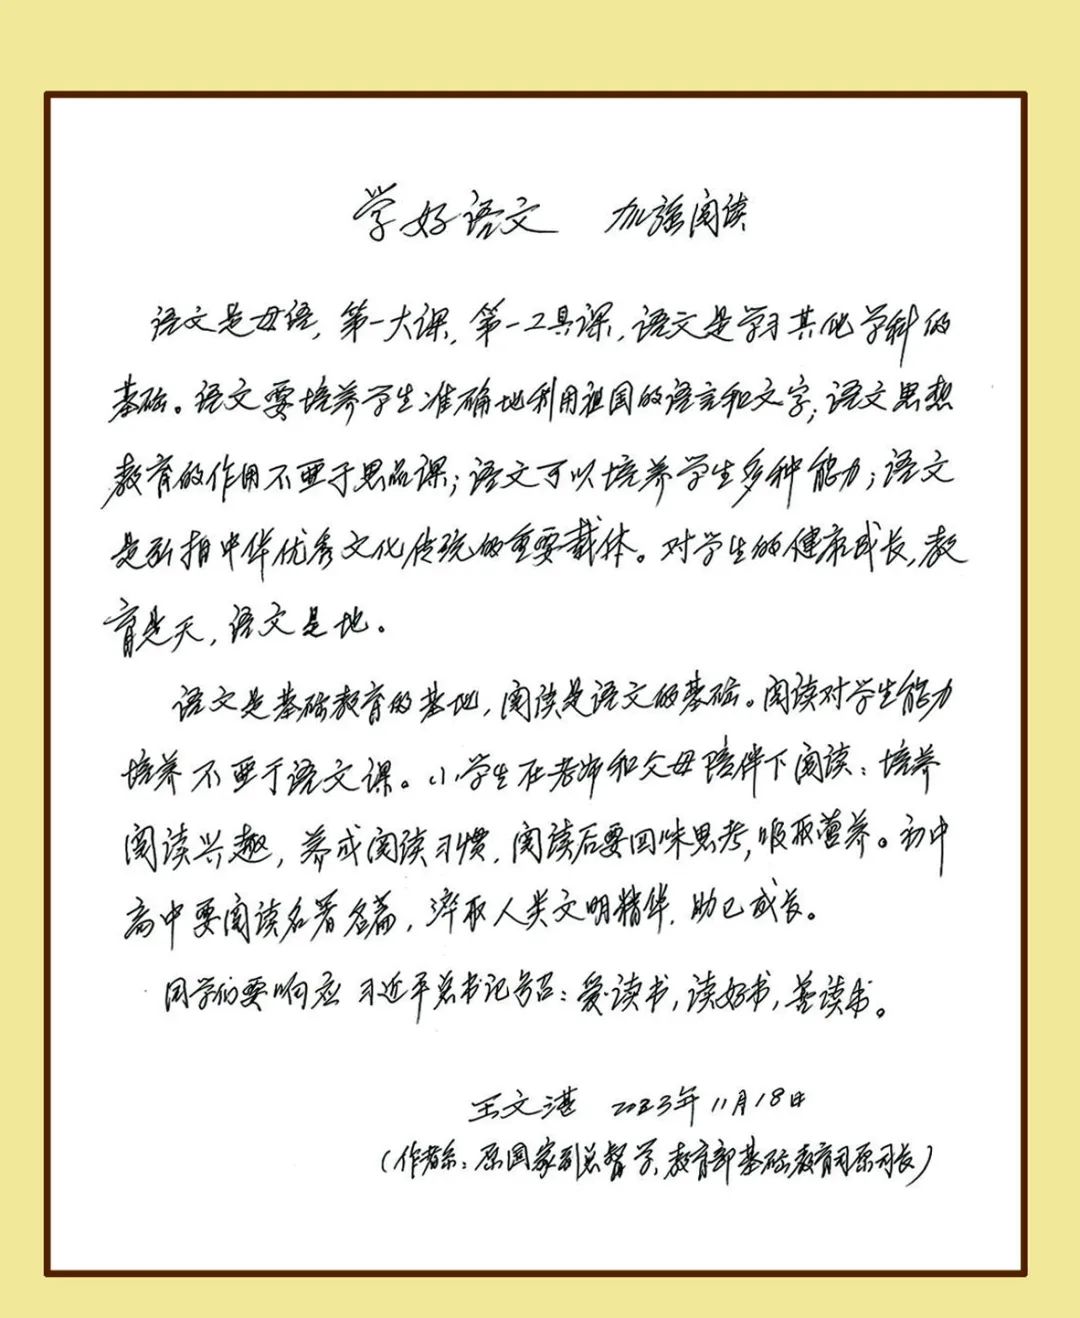 学好语文 加强阅读
语文是母语，第一大课，第一工具课，语文是学习其他学科的
基础。语文要培养学生准确地利用祖国的语言和文字；语文思想
教育的作用不亚于思品课；语文可以培养学生多种能力；语文
是弘扬中华优秀文化传统的重要载体。对学生的健康成长，教
育是天，语文是地。
语文是基础教育的基地，阅读是语文的基础。阅读对学生能力
培养不亚于语文课。小学生在老师和父母陪伴下阅读：培养
阅读兴趣，养成阅读习惯，阅读后要回味思考，吸取营养。初中
高中要阅读名著名篇，淬取人类文明精华，助己成长。
同学们要响应习近平总书记号召：爱读书，读好书，善读书。
王文湛 2023年11月18日
（作者系：原国家副总督学，教育部基础教育司原司长）